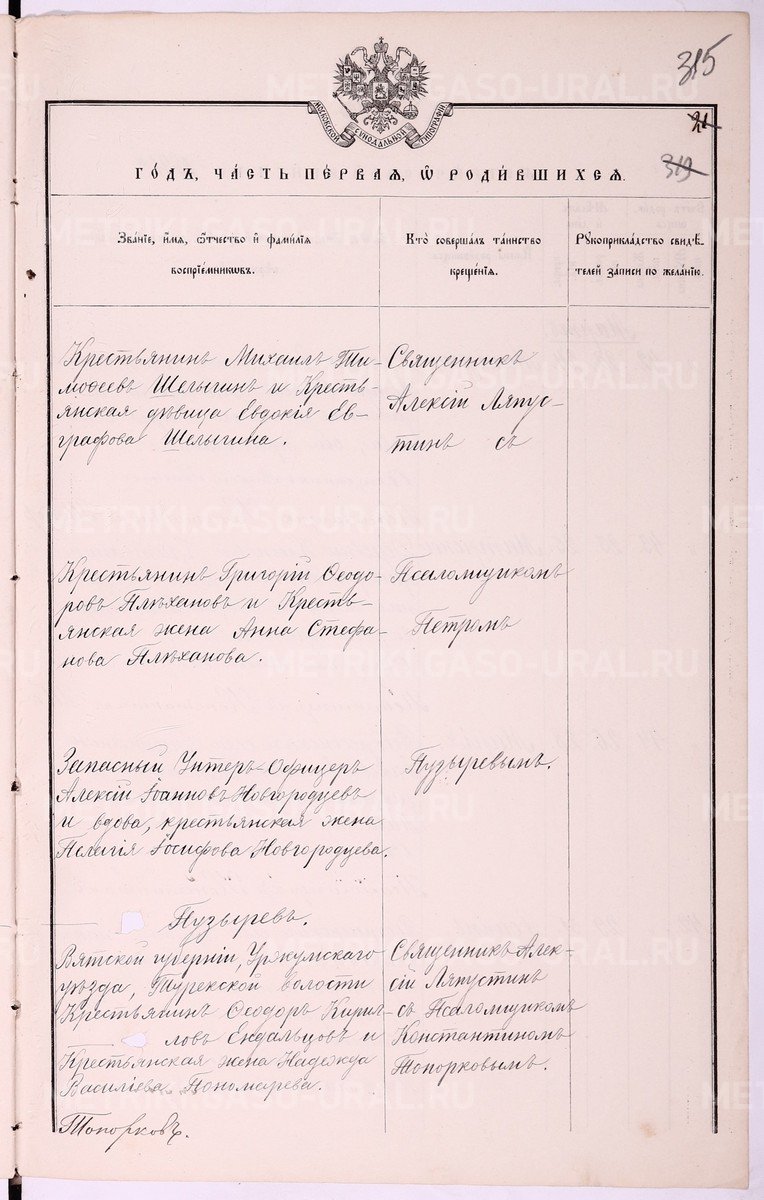 315
21
319
МОСКОВСКОЙ СѴНОДАЛЬНОЙ ТИПОГРАФІИ
ГО́ДЪ, ЧА́СТЬ ПЕ́РВАЯ, Ѽ РОДИ́ВШИХСЯ.
Зва́ніе, и҆́мя, ѻ҆́тчество и҆ фами́лія
воспріе́мниковъ.
Кто̀ соверша́лъ та́инство
креще́нія.
Рꙋкоприкла́дство свидѣ́-
телей за́писи по жела́нію.
Крестьянинъ Михаилъ Ти-
моѳеевъ Шелыгинъ и Кресть-
янская дѣвица Евдокія Ев-
графова Шелыгина.
Священникъ
Алексій Ляпус-
тинъ съ
Крестьянинъ Григорій Ѳеодо-
ровъ Плѣхановъ и Кресть-
янская жена Анна Стефа-
нова Плѣханова.
Псаломщикомъ
Петромъ
Запасный Унтеръ-Офицеръ
Алексій Іоанновъ Новгородцевъ
и вдова, крестьянская жена
Пелагія Іосифова Новгородцева.
Пузыревымъ.
Пузыревъ.
Вятской губерніи, Уржумскаго
уѣзда, Турекской волости
Крестьянинъ Ѳеодоръ Кирил-
ловъ Ендальцовъ и
Крестьянская жена Надежда
Василіева Пономарева.
Священникъ Алек-
сій Ляпустинъ
съ Псаломщикомъ
Константиномъ
Топорковымъ.
Топорковъ.
METRIKI.GASO-URAL.RU